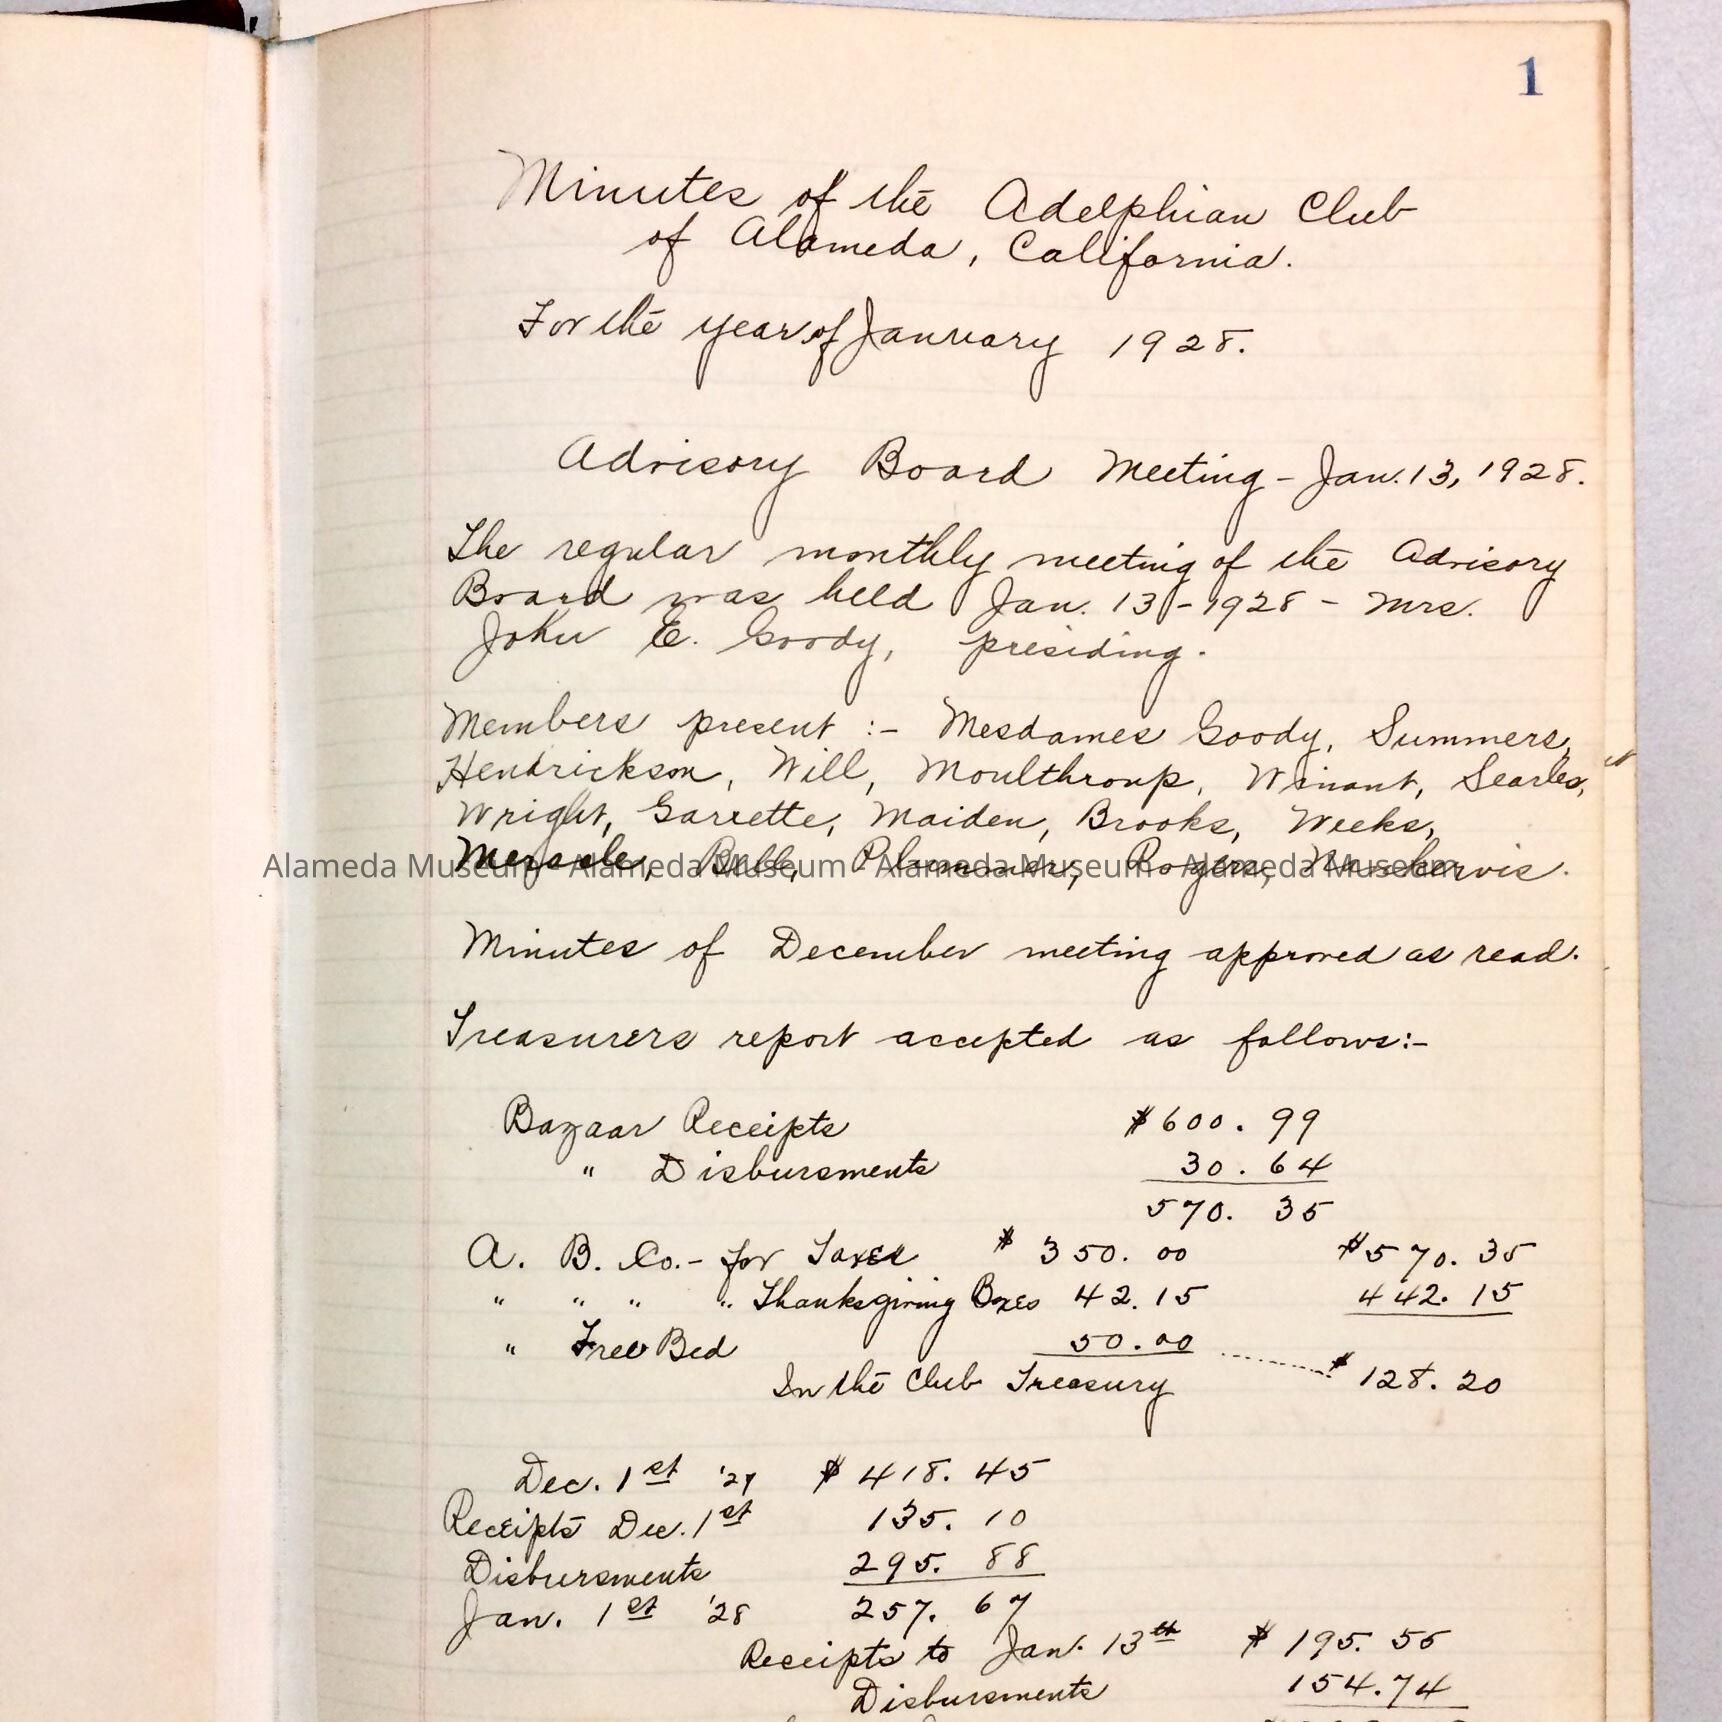 1
Minutes of the Adelphian Club
of Alameda, California.
For the year of January 1928.
Advisory Board Meeting - Jan. 13, 1928.
The regular monthly meeting of the Advisory
Board was held Jan. 13 - 1928 - Mrs.
John E. Goody, presiding.
Members present :- Mesdames Goody, Summers,
Hendrickson, Will, Moulthroup, Winant, Searles,
Wright, Garrette, Maiden, Brooks, Weeks,
Bell, Plummer, Rogers,
Alameda Museum - Alameda Museum - Alameda Museum - Alameda Museum
Minutes of December meeting approved as read.
Treasurers report accepted as follows:-
Bazaar Receipts $600.99
" Disbursments 30.64
570.35
A. B. Co. - for Taxes $350.00 $570.35
" " " " Thanksgiving Boxes 42.15 442.15
" Free Bed 50.00
In the Club Treasury $128.20
Dec. 1st '27 $418.45
Receipts Dec. 1st 135.10
Disbursments 295.88
Jan. 1st '28 257.67
Receipts to Jan. 13th $195.55
Disbursments 154.74